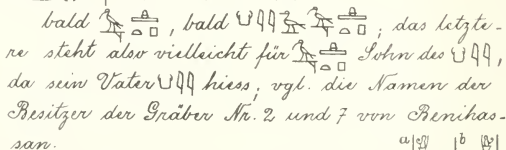 bald 𓅭𓊵𓏏𓊪, bald 𓂓𓇌𓅭𓅭𓊵𓏏𓊪; das letzte-
re steht also vielleicht für 𓅭𓊵𓏏𓊪 Sohn des 𓂓𓇌,
da sein Vater 𓂓𓇌 hiess; vgl. die Namen der
Besitzer der Gräber Nr. 2 und 7 von Benihas-
san.
a b